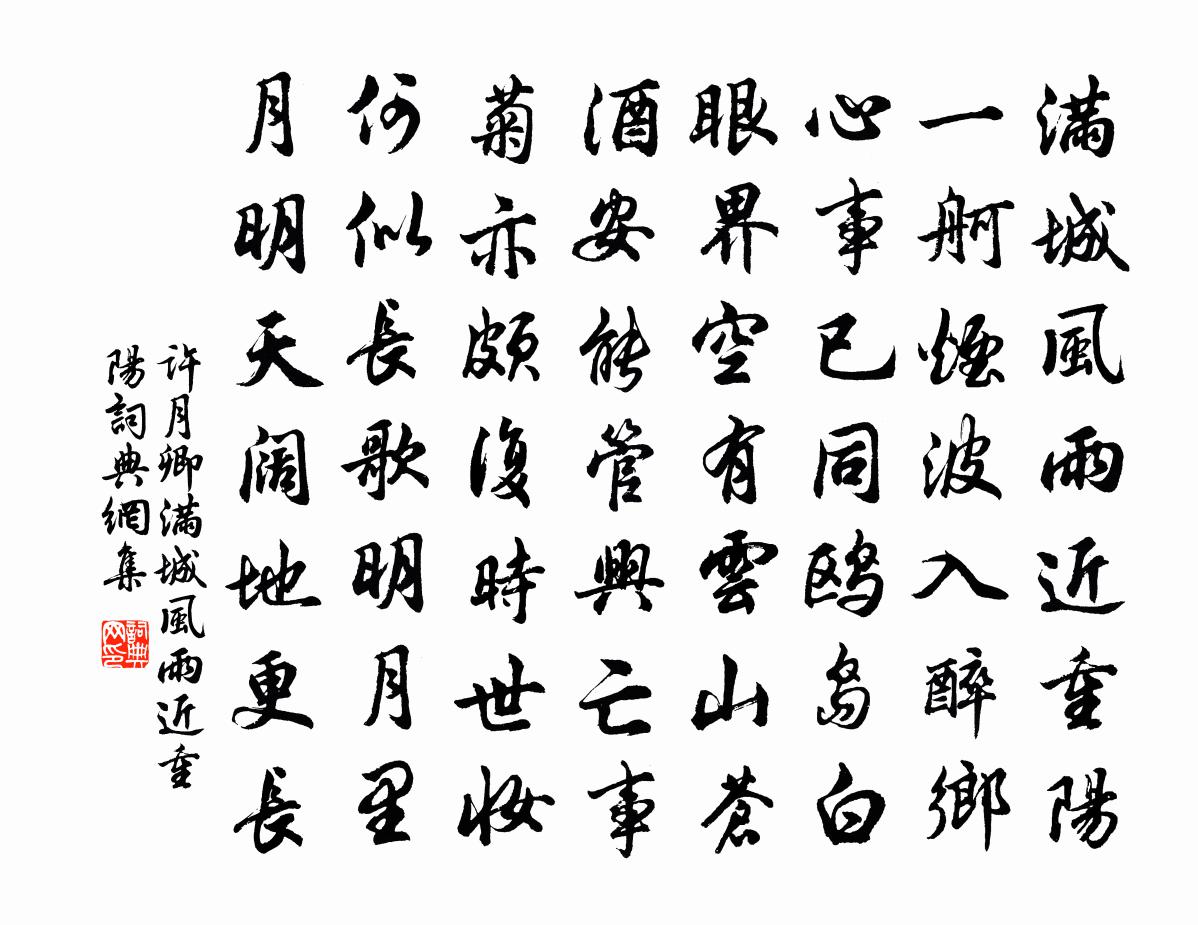 滿城風雨近重陽
一舸煙波入醉鄉
心事已同鷗鳥白
眼界空有雲山蒼
酒安能管興亡事
菊亦頗復時世妝
何似長歌明月里
月明天闊地更長
許月卿滿城風雨近重
陽詞典網集
詞典
网印